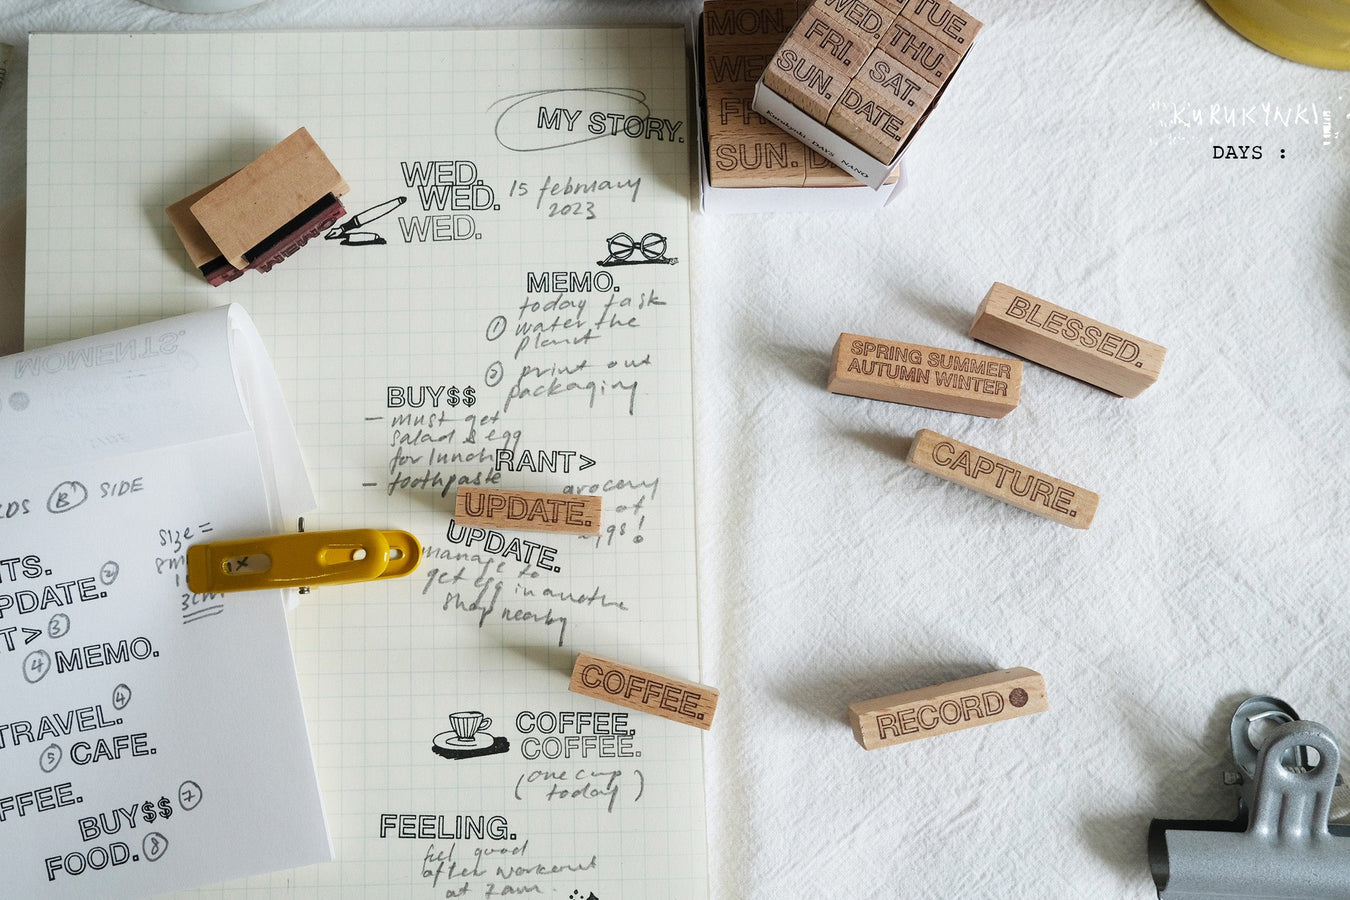 MY STORY.
WED.
WED.
WED.
15 february
2023
MEMO.
today task
① water the
plant
② print out
packaging
BUY$$
— must get
salad & egg
for lunch
— toothpaste
RANT>
grocery
of
UPDATE.
UPDATE.
manage to
get egg in another
shop nearby
COFFEE.
COFFEE.
COFFEE.
(one cup
today)
FEELING.
feel good
after workout
at 7am.
MOMENTS.
B SIDE
size =
3cm
TS.
PDATE. ②
T> ③
④ MEMO.
TRAVEL. ④
⑤ CAFE.
FFEE.
BUY$$ ⑦
FOOD. ⑧
X
MON.
WE
FR
SUN. D
WED. TUE.
FRI. THU.
SUN. SAT.
DATE.
Kurukynki - DAYS NANO
KURUKYNKI
DAYS :
BLESSED.
SPRING SUMMER
AUTUMN WINTER
CAPTURE.
RECORD